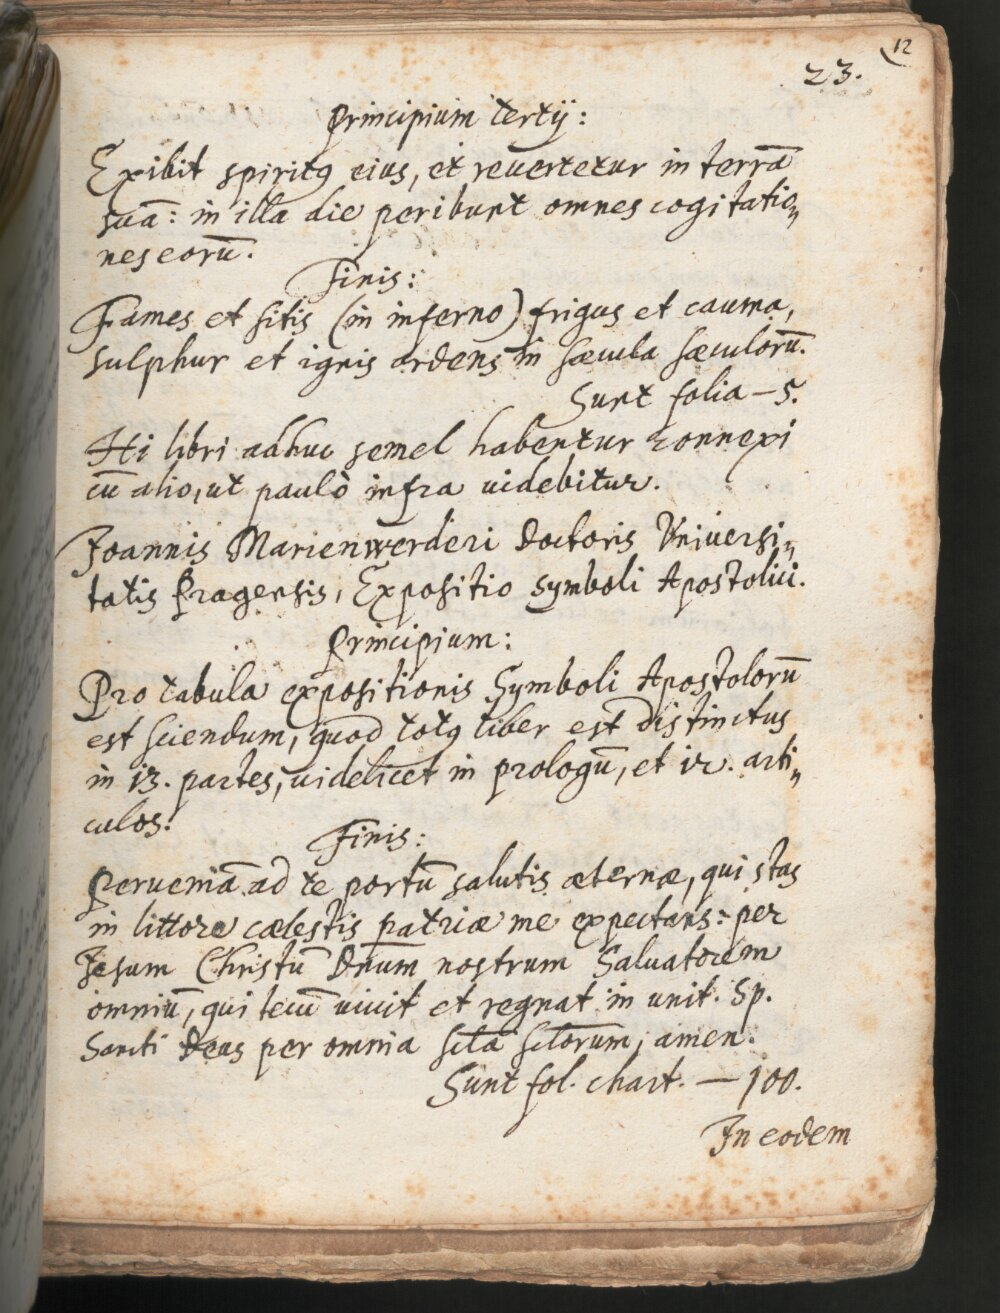 12
23.
Principium tertij:
Exibit spiritꝯ eius, et reuertetur in terrā
suā: in illa die peribunt omnes cogitatio„
nes eorū.
Finis:
Fames et sitis (in inferno) frigus et cauma,
sulphur et ignis ardens in sæcula sæculorū.
Sunt folia – 5.
Hi libri adhuc semel habentur connexi
cū alio, ut paulò infra uidebitur.
Joannis Marienwerderi Doctoris Vniuersi„
tatis Pragensis, Expositio symboli Apostolici.
Principium:
Pro tabula expositionis Symboli Apostolorū
est sciendum, quod totꝯ liber est distinctus
in 13. partes, uidelicet in prologū, et 12. arti„
culos:
Finis:
Perueniā ad te portū salutis æternæ, qui stas
in littore cælestis patriæ me expectans: per
Jesum Christū Dn̄um nostrum Saluatorem
omniū, qui tecū uiuit et regnat in unit. Sp.
Sancti Deus per omnia sc̄la sc̄lorum, amen.
Sunt fol. chart. — 100.
In eodem